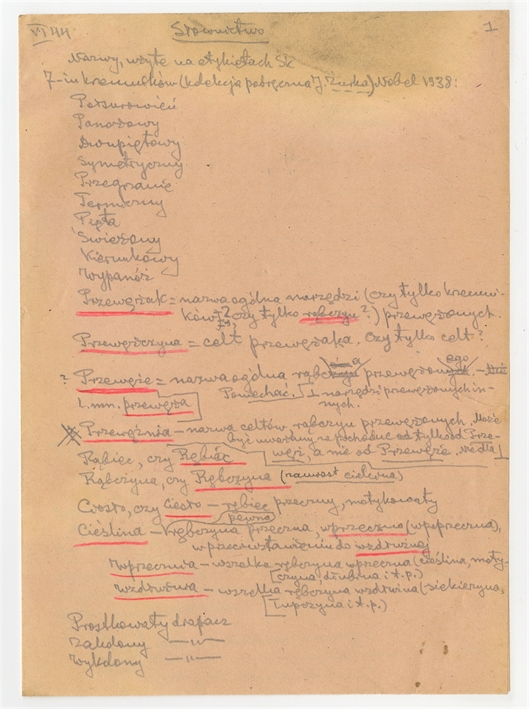 VI 44 Słownictwo 1
Nazwy, użyte na etykietach Sk
7-iu kremuków (kolekcja podręczna J. Żurka) Nobel 1938:
Panodowy
Dwupiętowy
Symetryczny
Przegranie
Termiczny
Pięta
Świezony
Kierunkowy
Wypanóż
Przewężak = nazwa ogólna narzędzi (czy tylko kremu-
ków? czy tylko rąbczyn?) przewężonych.
Przewężczyna = celt przewężaka. Czy tylko celt?
? Przewęzie = nazwa ogólna przewężonego
Poniechać. narzędzi przewężonych in-
l. mn. przewęza nych.
Przewęźnia – nazwa celtów, rąbczyn przewężonych. Może
być uważany za pochodną od tylko od Prze-
węzi, a nie od Przewęzie
Rąbiec, czy Rębiec
Rąbczyna, czy Rębczyna (
Ciosto, czy Ciesto – rębiec przeczny, motykowaty
pewna
Cieślina – rębczyna przeczna, wprzeczna (wpoprzeczna),
w przeciwstawieniu do wzdłużnej
Wprzecznia – wszelka rębczyna wprzeczna (cieślina, moty-
czyna, dłubina i t.p.)
Wzdłużnia – wszelka rębczyna wzdłużna (siekierzyna,
łupczyna i t.p.)
Prostkowaty drapacz
Zakolony —„—
Wyklony —„—